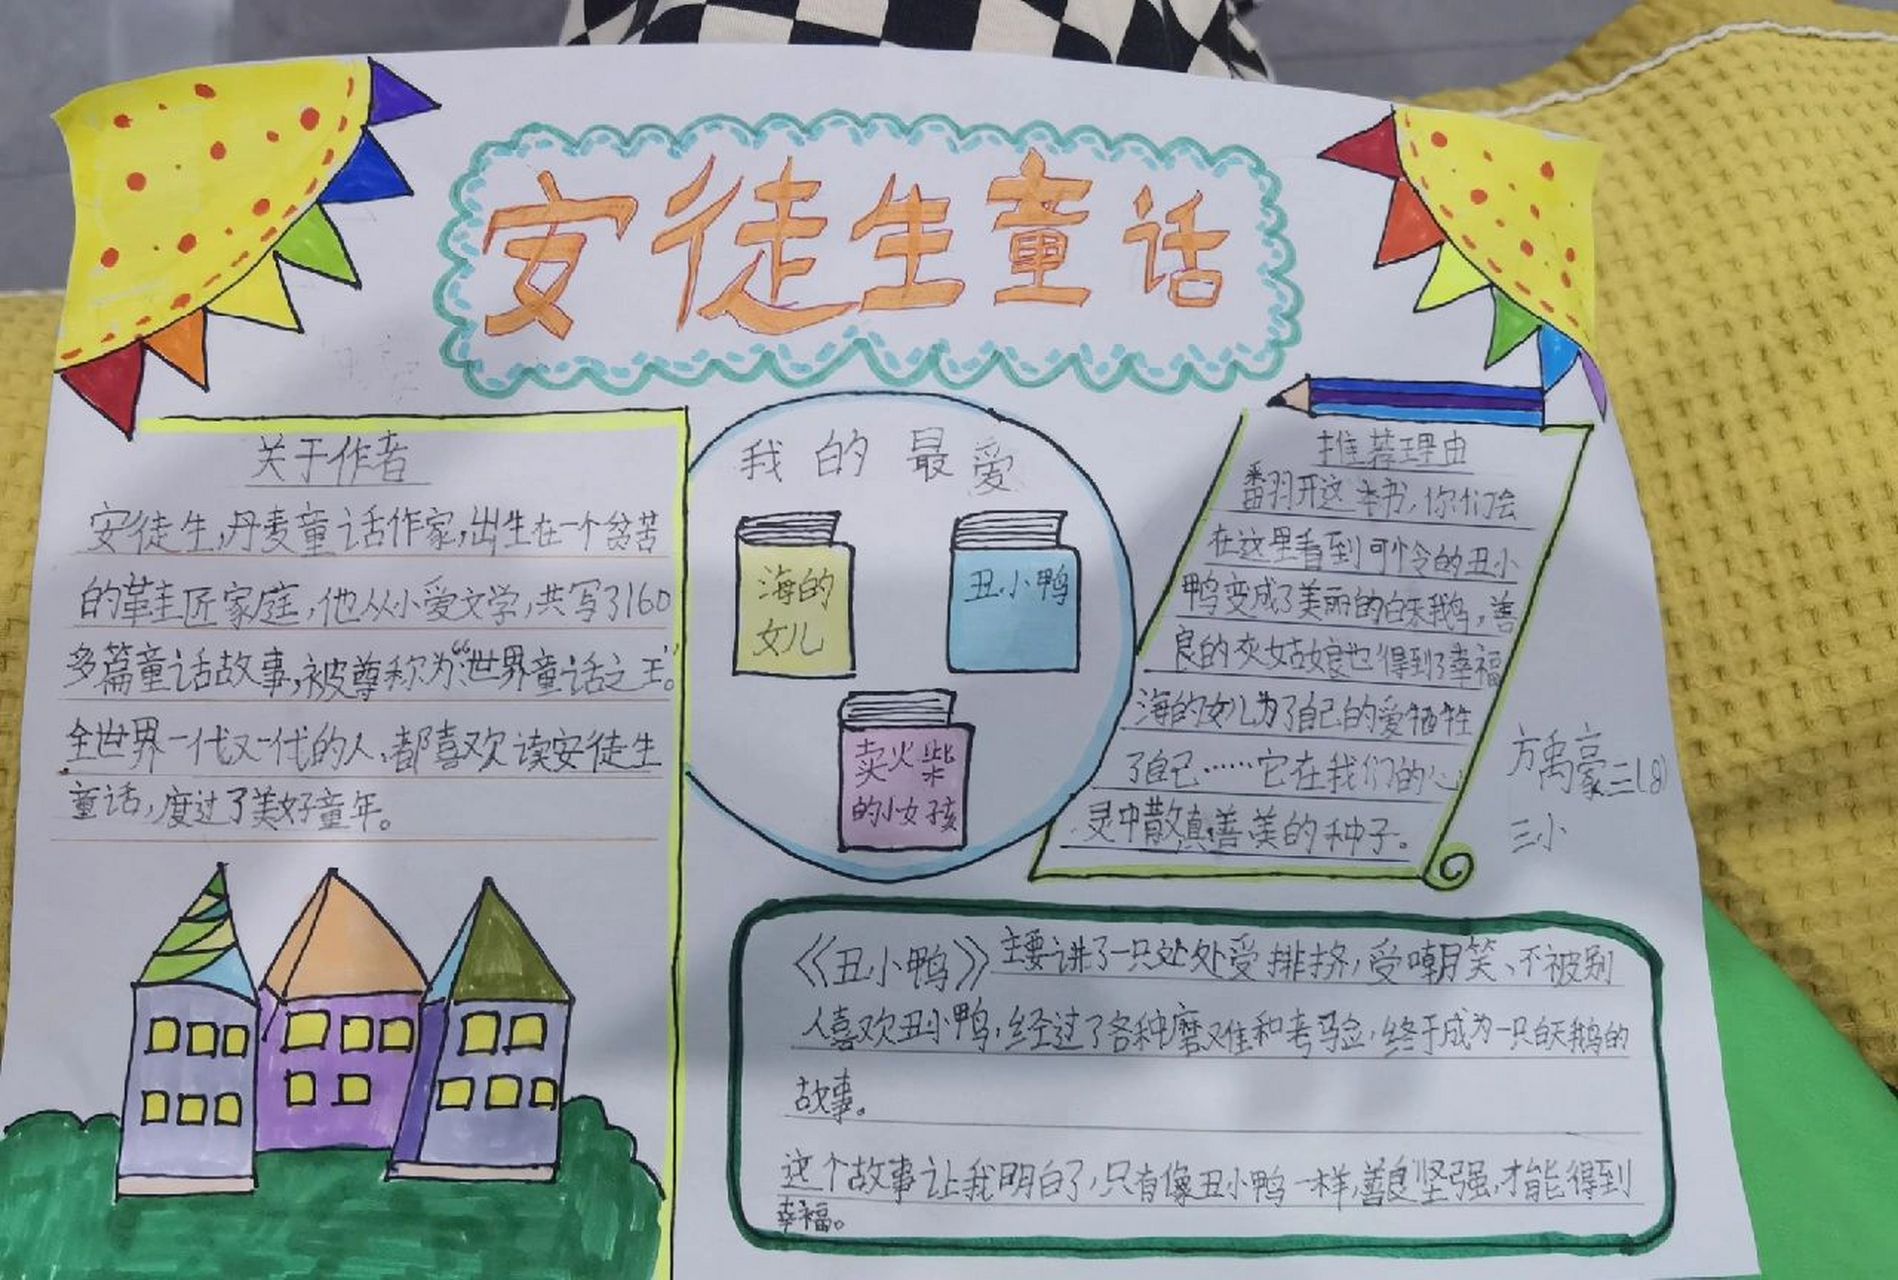 安徒生童话
关于作者
安徒生,丹麦童话作家,出生在一个贫苦
的鞋匠家庭,他从小爱文学,共写了160
多篇童话故事,被尊称为“世界童话之王”。
全世界一代又一代的人,都喜欢读安徒生
童话,度过了美好童年。
我的最爱
海的
女儿
丑小鸭
卖火柴
的小女孩
推荐理由
翻开这本书,你们会
在这里看到可怜的丑小
鸭变成了美丽的白天鹅,善
良的灰姑娘也得到了幸福
海的女儿为了自己的爱牺牲
了自己……它在我们的心
灵中散真善美的种子。
方禹豪三(8)
三小
《丑小鸭》主要讲了一只处处受排挤,受嘲笑、不被别
人喜欢丑小鸭,经过了各种磨难和考验,终于成为一只白天鹅的
故事。
这个故事让我明白了,只有像丑小鸭一样,善良坚强,才能得到
幸福。